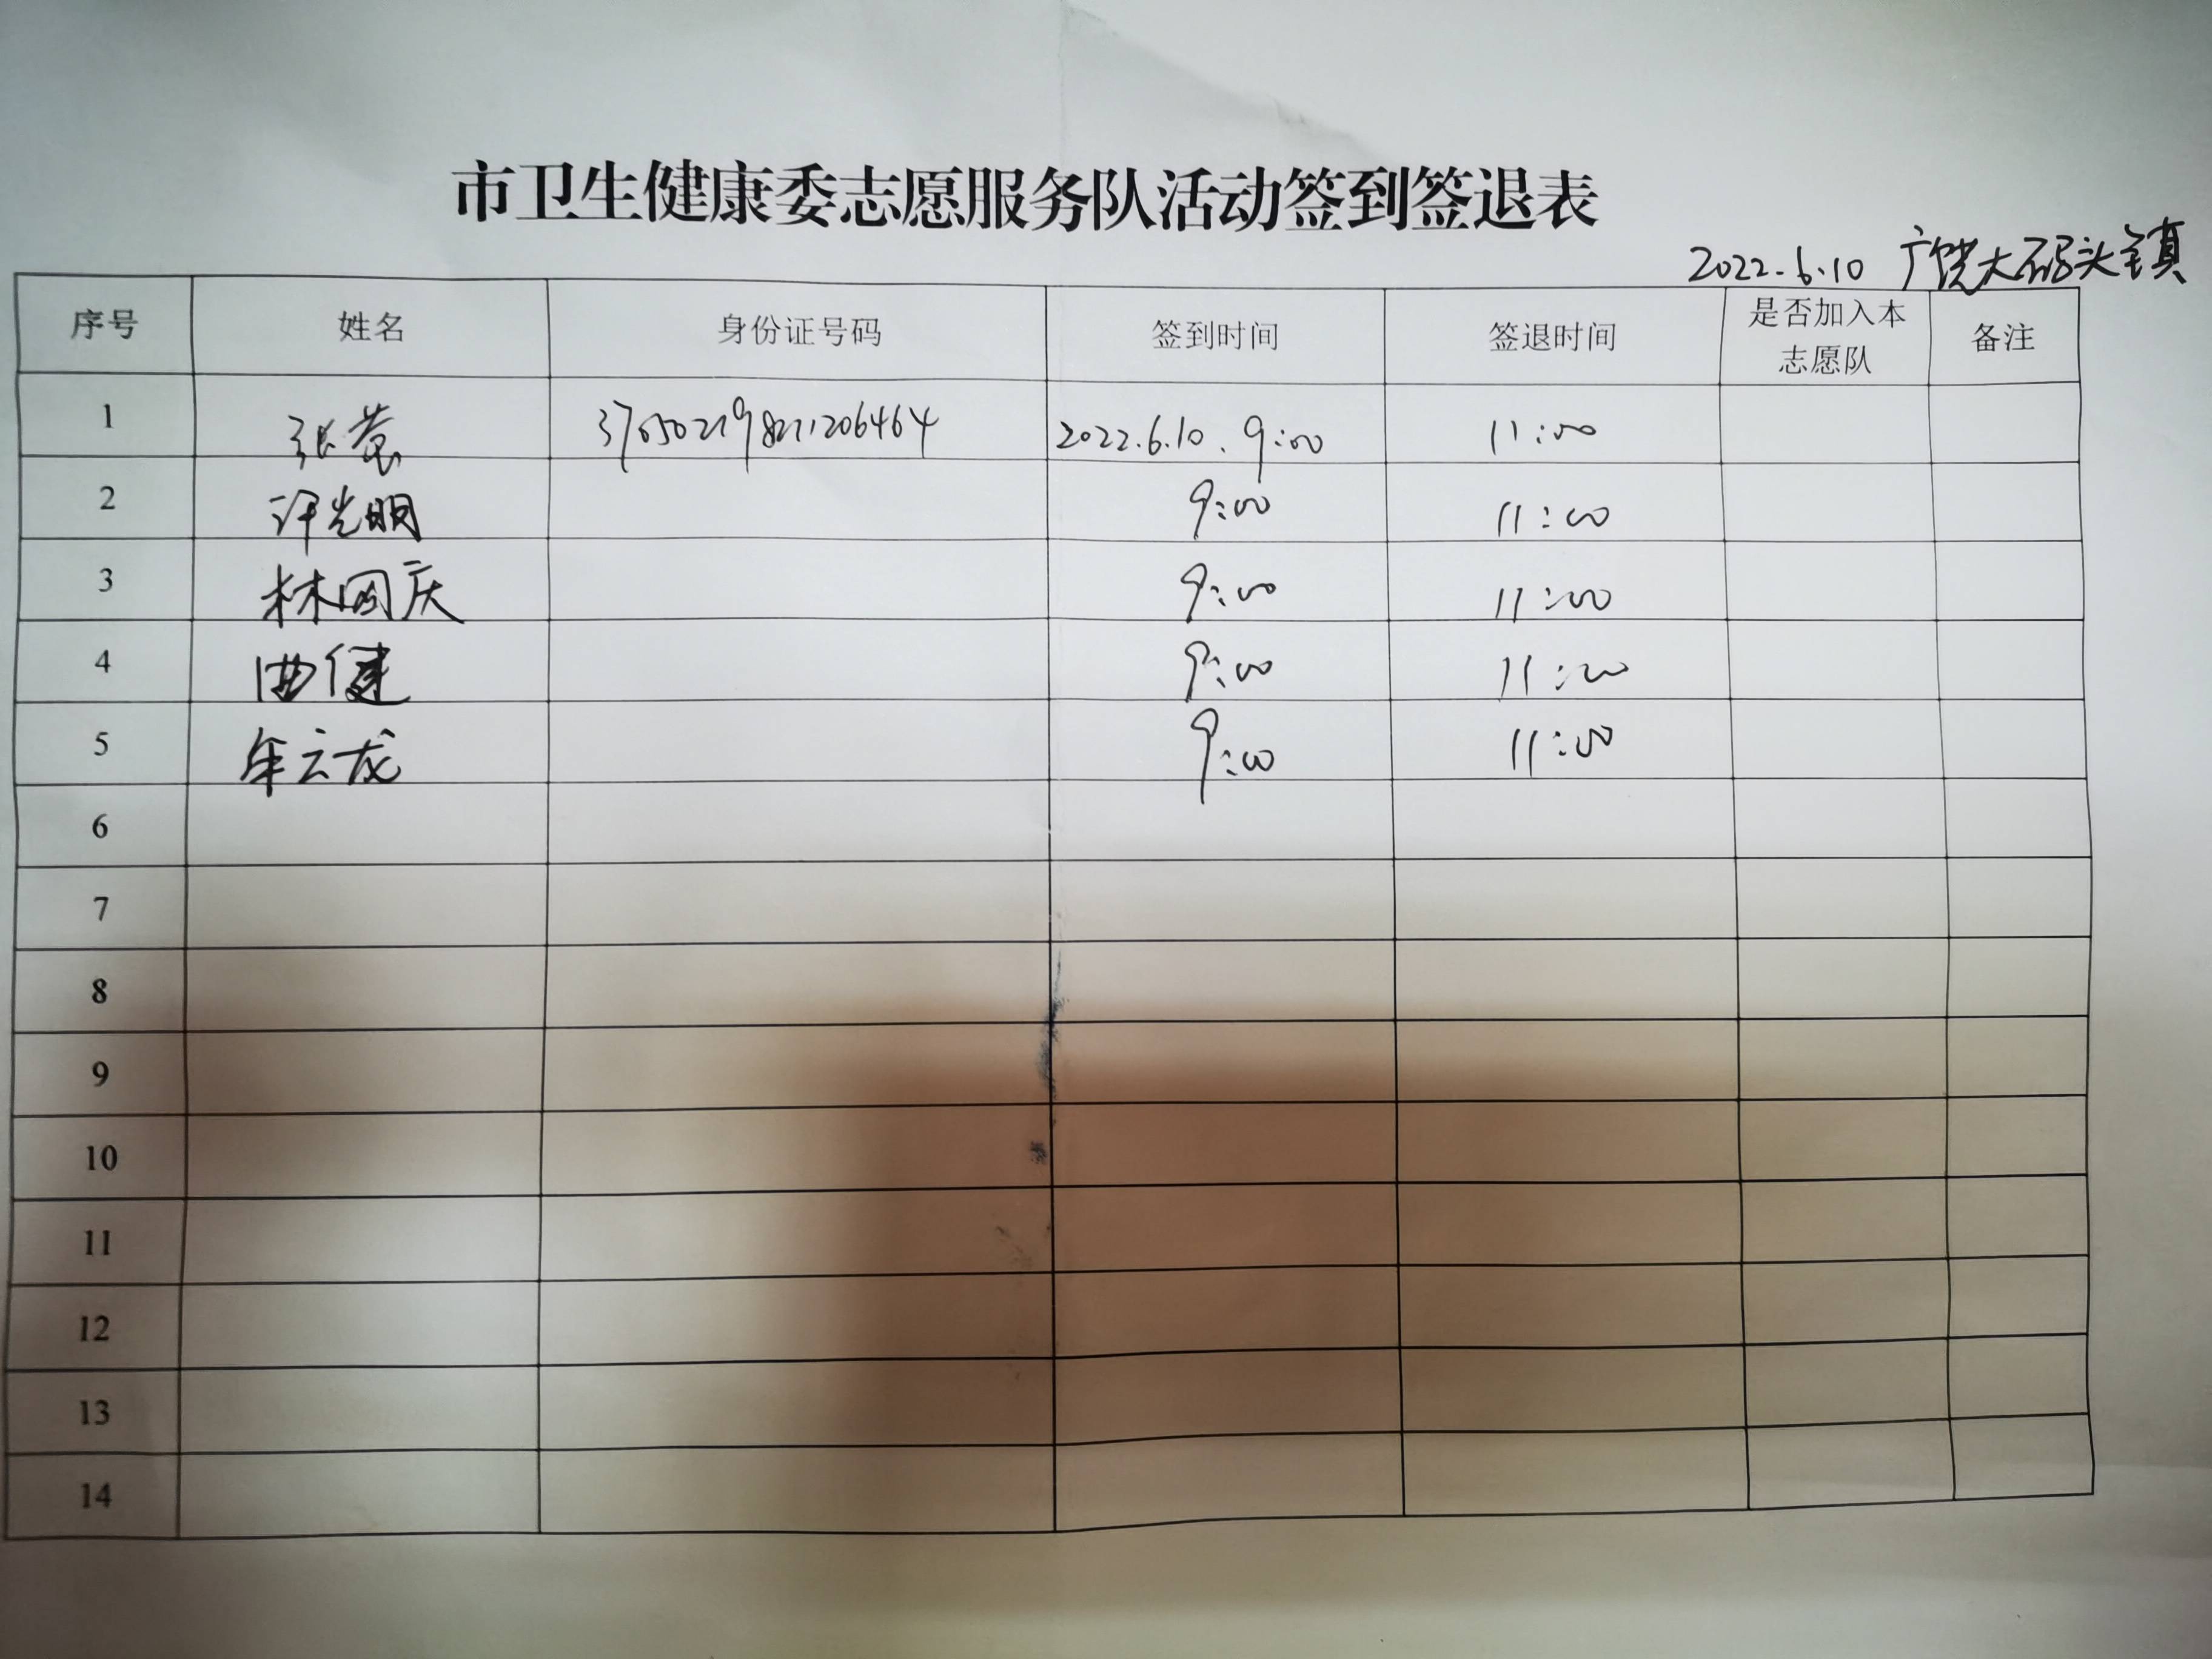 市卫生健康委志愿服务队活动签到签退表
2022.6.10 广饶大码头镇
序号 姓名 身份证号码 签到时间 签退时间 是否加入本志愿队 备注
1 张 2022.6.10. 9:00 11:00
2 许光明 9:00 11:00
3 林国庆 9:00 11:00
4 曲健 9:00 11:00
5 云龙 9:00 11:00
6
7
8
9
10
11
12
13
14